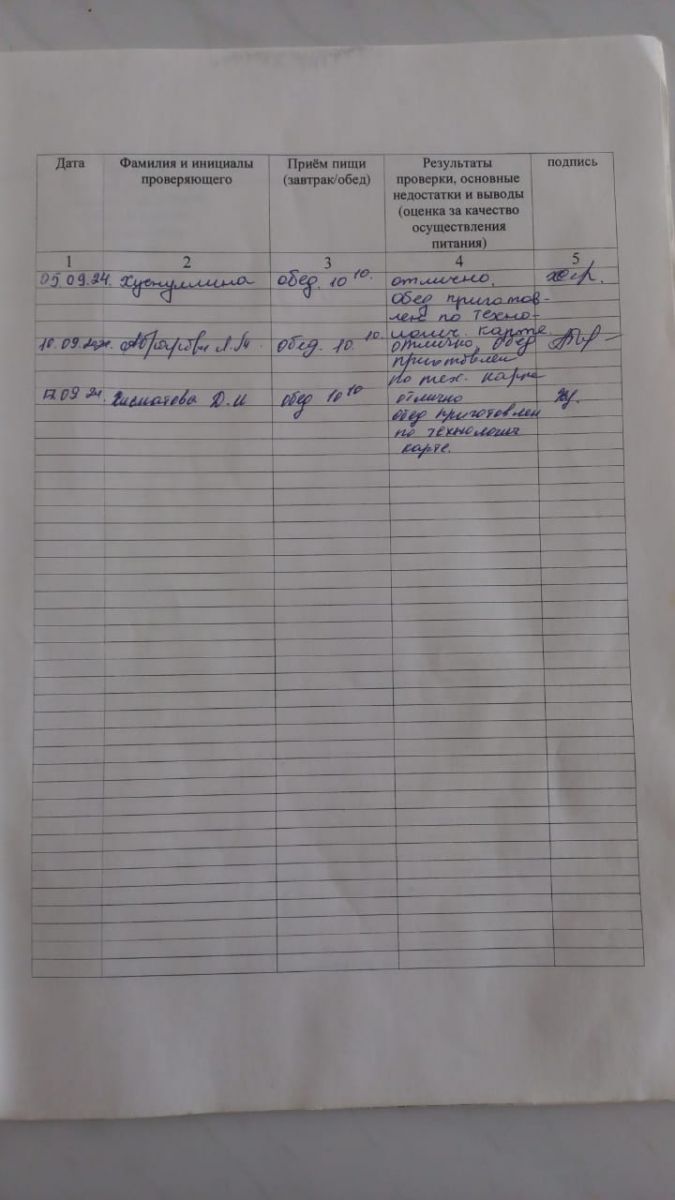 Дата Фамилия и инициалы Приём пищи Результаты подпись
проверяющего (завтрак/обед) проверки, основные
недостатки и выводы
(оценка за качество
осуществления
питания)
1 2 3 4 5
05.09.24. Хуснуллина обед. 10 10. отлично,
обед приготов-
лен по техно-
логич. карте
10.09.24. обед. 10 10. отлично, обед
приготовлен
по тех. карте
12.09.24. Хисматова Д.И обед 10 10 отлично
обед приготовлен
по технологич
карте.